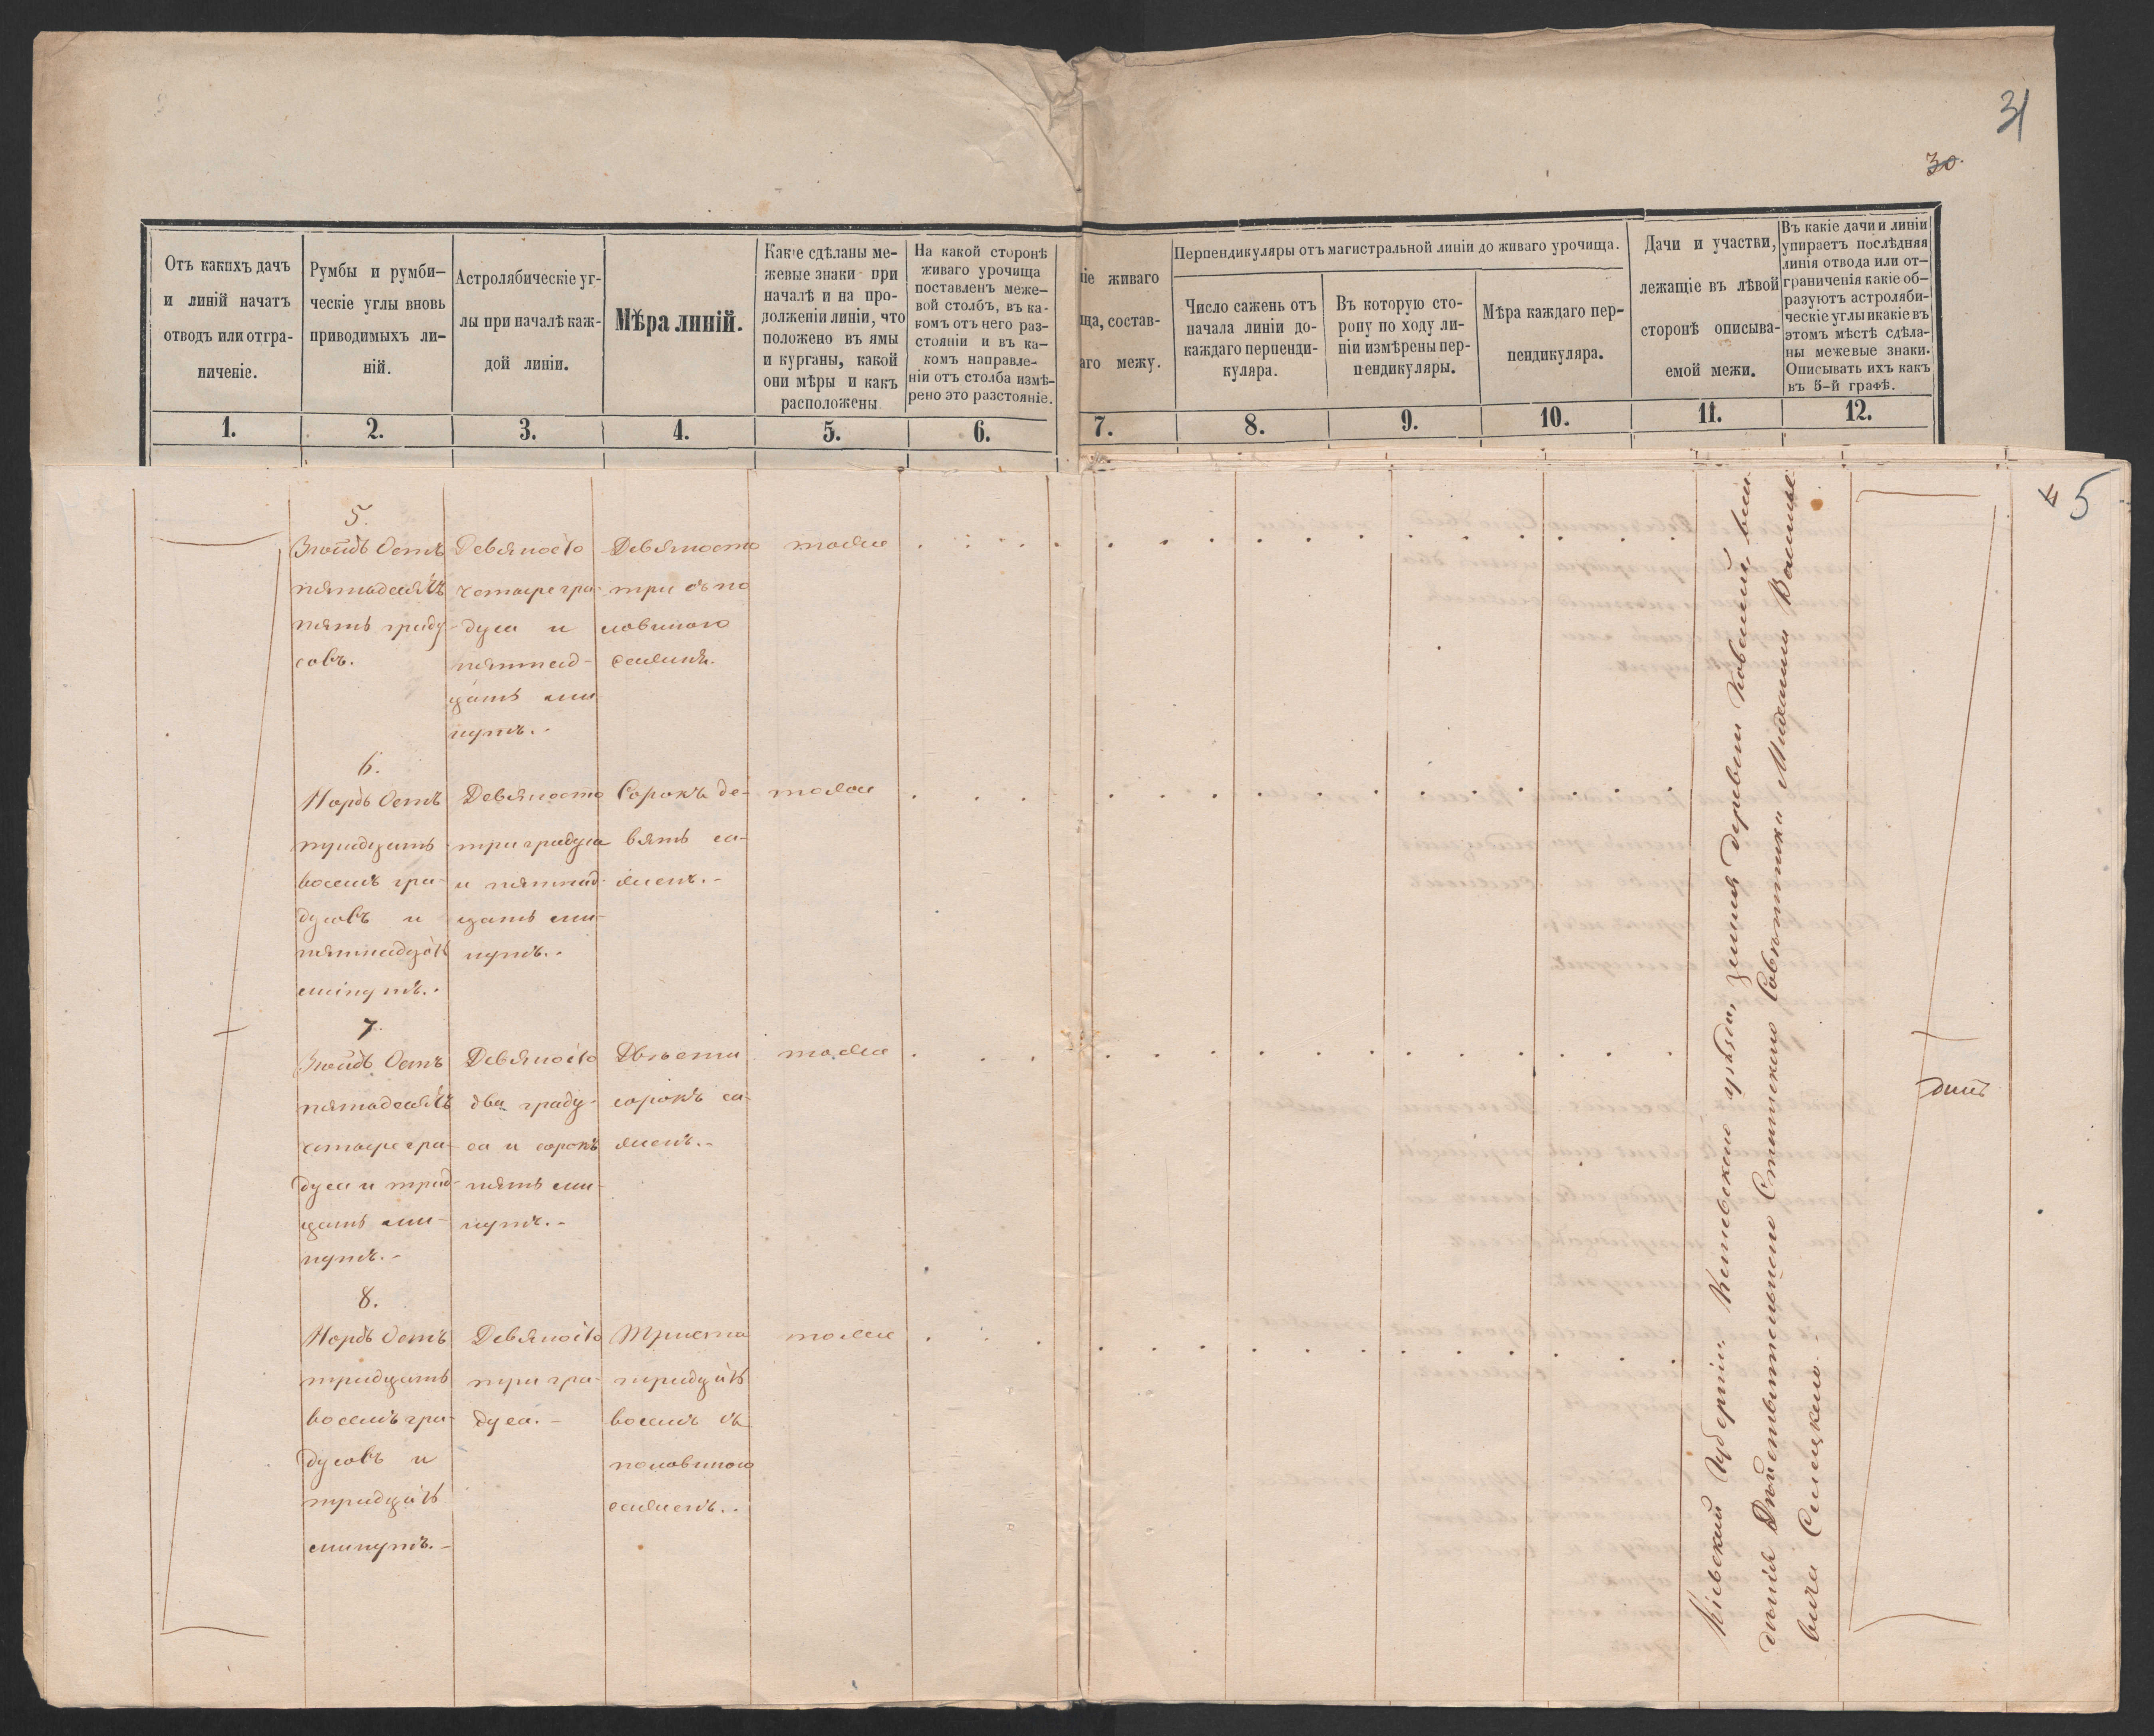 31
30.
Отъ какихъ дачъ
и линій начатъ
отводъ или отгра-
ниченіе.
Румбы и румби-
ческіе углы вновь
приводимыхъ ли-
ній.
Астролябическіе уг-
лы при началѣ каж-
дой линіи.
Мѣра линій.
Какіе сдѣланы ме-
жевые знаки при
началѣ и на про-
долженіи линіи, что
положено въ ямы
и курганы, какой
они мѣры и какъ
расположены.
На какой сторонѣ
живаго урочища
поставленъ меже-
вой столбъ, въ ка-
комъ отъ него раз-
стояніи и въ ка-
комъ направле-
ніи отъ столба измѣ-
рено это разстояніе.
ніе живаго
ща, состав-
аго межу.
Перпендикуляры отъ магистральной линіи до живаго урочища.
Число сажень отъ
начала линіи до-
каждаго перпенди-
куляра.
Въ которую сто-
рону по ходу ли-
ніи измѣрены пер-
пендикуляры.
Мѣра каждаго пер-
пендикуляра.
Дачи и участки,
лежащіе въ лѣвой
сторонѣ описыва-
емой межи.
Въ какіе дачи и линіи
упираетъ послѣдняя
линія отвода или от-
граниченія какіе об-
разуютъ астроляби-
ческіе углы и какіе въ
этомъ мѣстѣ сдѣла-
ны межевые знаки.
Описывать ихъ какъ
въ 5-й графѣ.
1. 2. 3. 4. 5. 6. 7. 8. 9. 10. 11. 12.
5
5.
Зюйдъ Остъ
пятьдесятъ
пять граду
совъ.
Девяносто
четыре гра-
дуса и
пятнад-
цать ми-
нутъ.
Девяносто
три съ по
ловиною
сажня.
тоже
6.
Нордъ Остъ
тридцать
восемь гра-
дусовъ и
пятнадцать
минутъ.
Девяносто
три градуса
и пятнад-
цать ми-
нутъ.
Сорокъ де-
вять са-
жень.
тоже
7.
Зюйдъ Остъ
пятьдесятъ
четыре гра-
дуса и трид-
цать ми-
нутъ.
Девяносто
два граду-
са и сорокъ
пять ми-
нутъ.
Двѣсти
сорокъ са-
жень.
тоже
8.
Нордъ Остъ
тридцать
восемь гра-
дусовъ и
тридцать
минутъ.
Девяносто
три гра-
дуса.
Триста
тридцать
восемь съ
половиною
сажень.
тоже
Кіевской Губерніи, Кіевскаго уѣзда, земля деревни
данія Дѣйствительнаго Статскаго Совѣтника Михаила Василье
вича